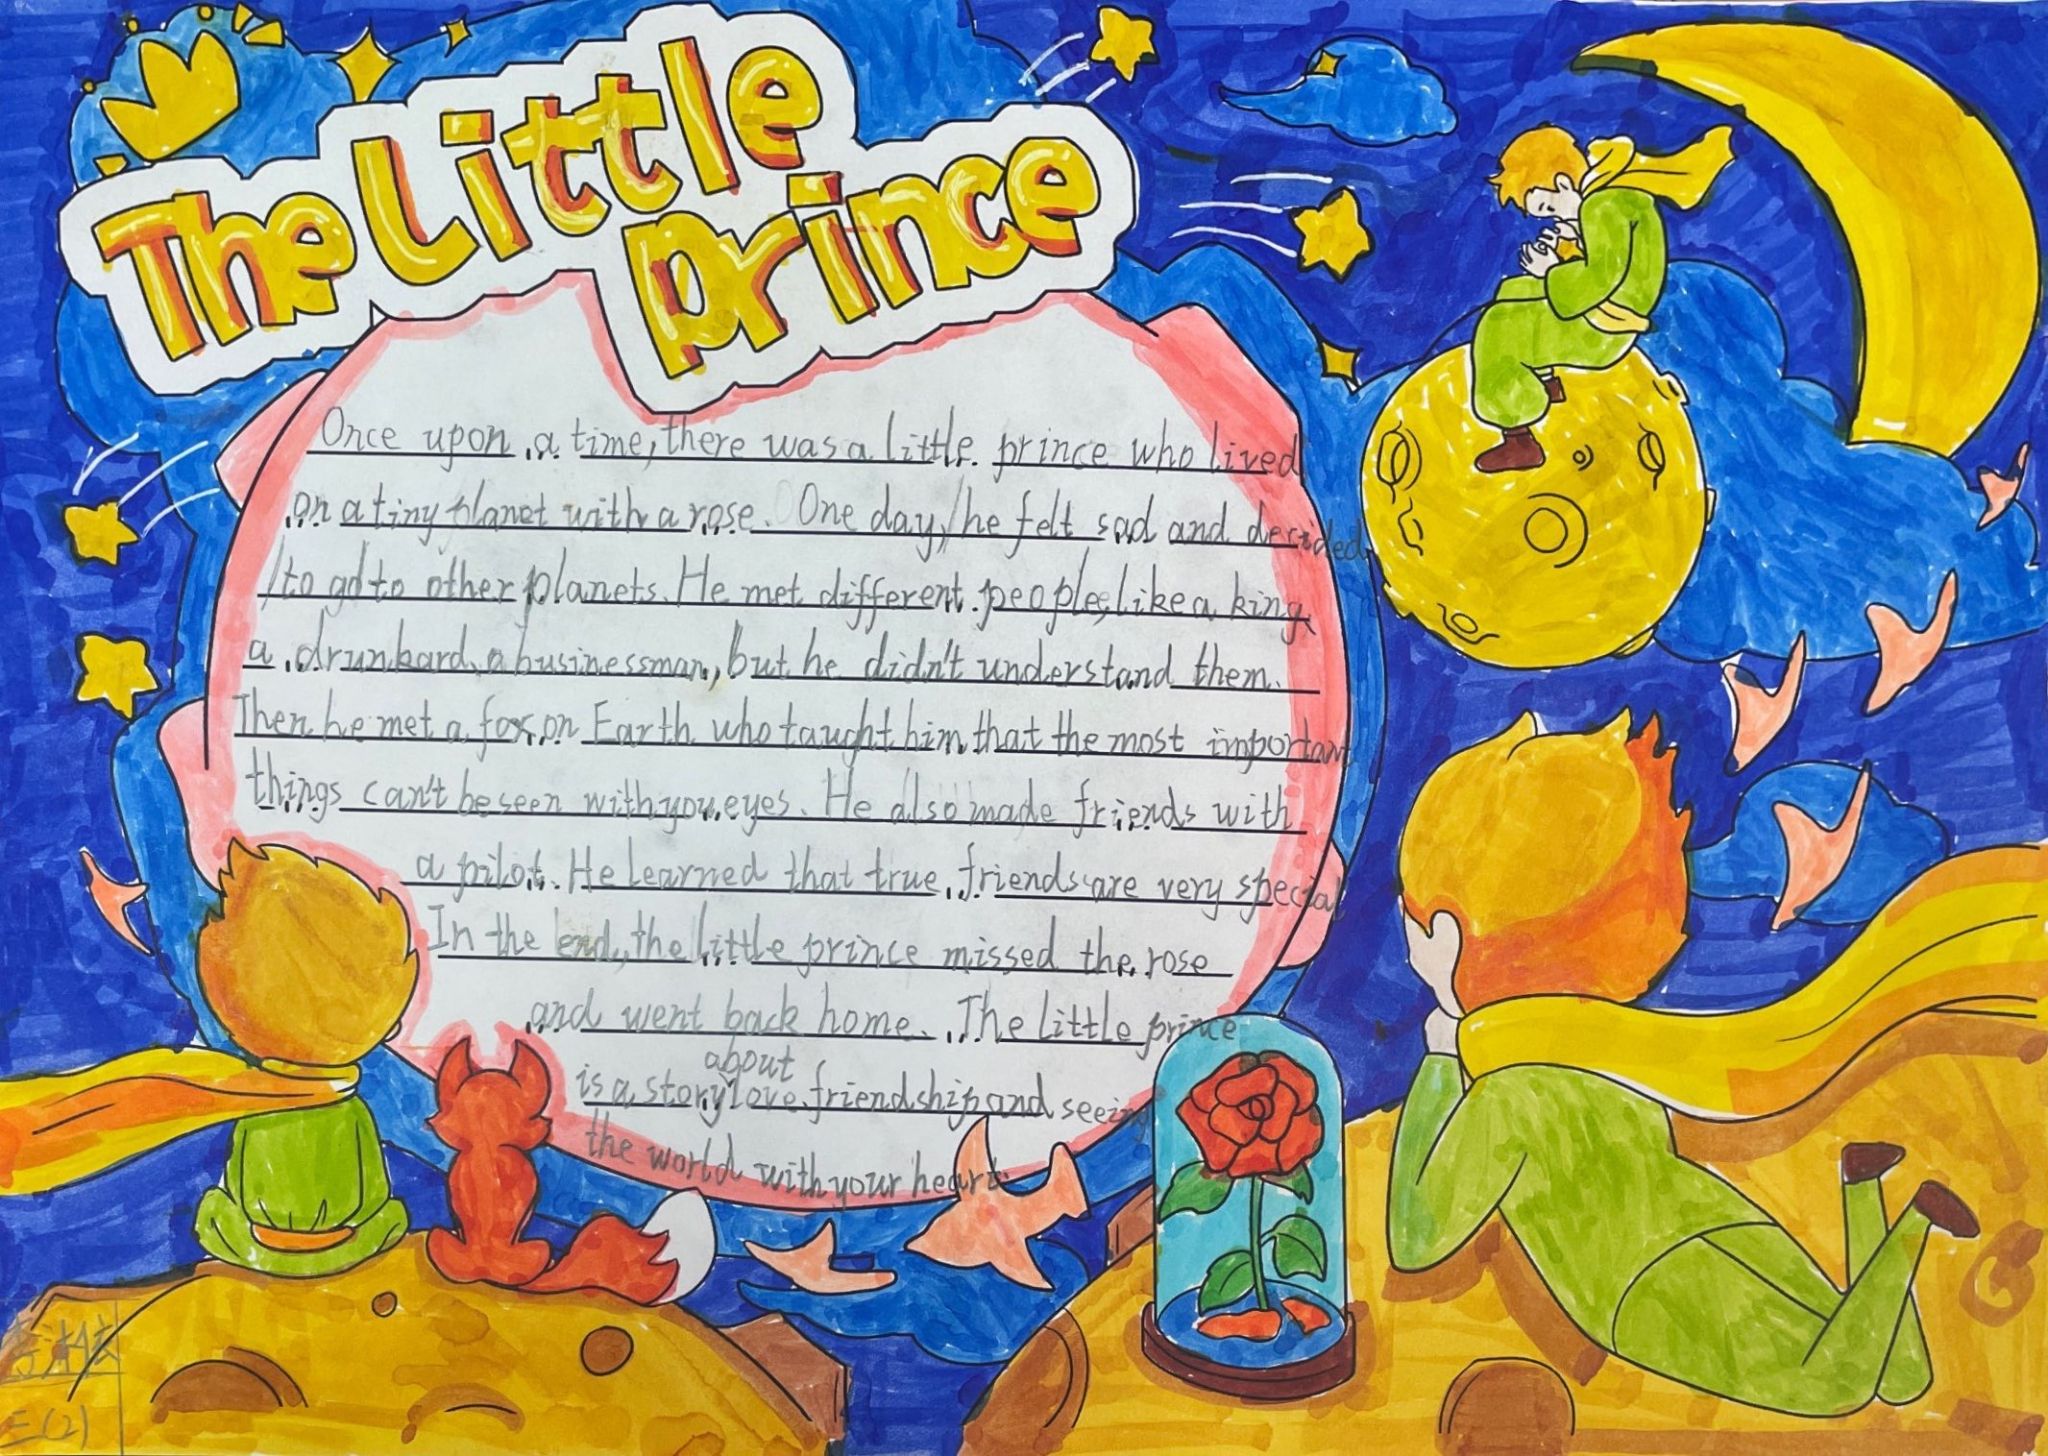 The Little
Prince
Once upon a time, there was a little prince who lived
on a tiny planet with a rose. One day, he felt sad and decided
to go to other planets. He met different people, like a king,
a drunkard, a businessman, but he didn't understand them.
Then he met a fox on Earth who taught him that the most important
things can't be seen with you eyes. He also made friends with
a pilot. He learned that true friends are very special
In the end, the little prince missed the rose
and went back home. The little prince
about
is a story love friendship and seeing
the world with your heart.
三(2)